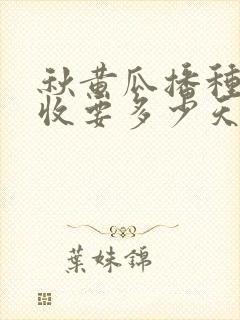 秋黄瓜播種
收要多少天
葉妹錦